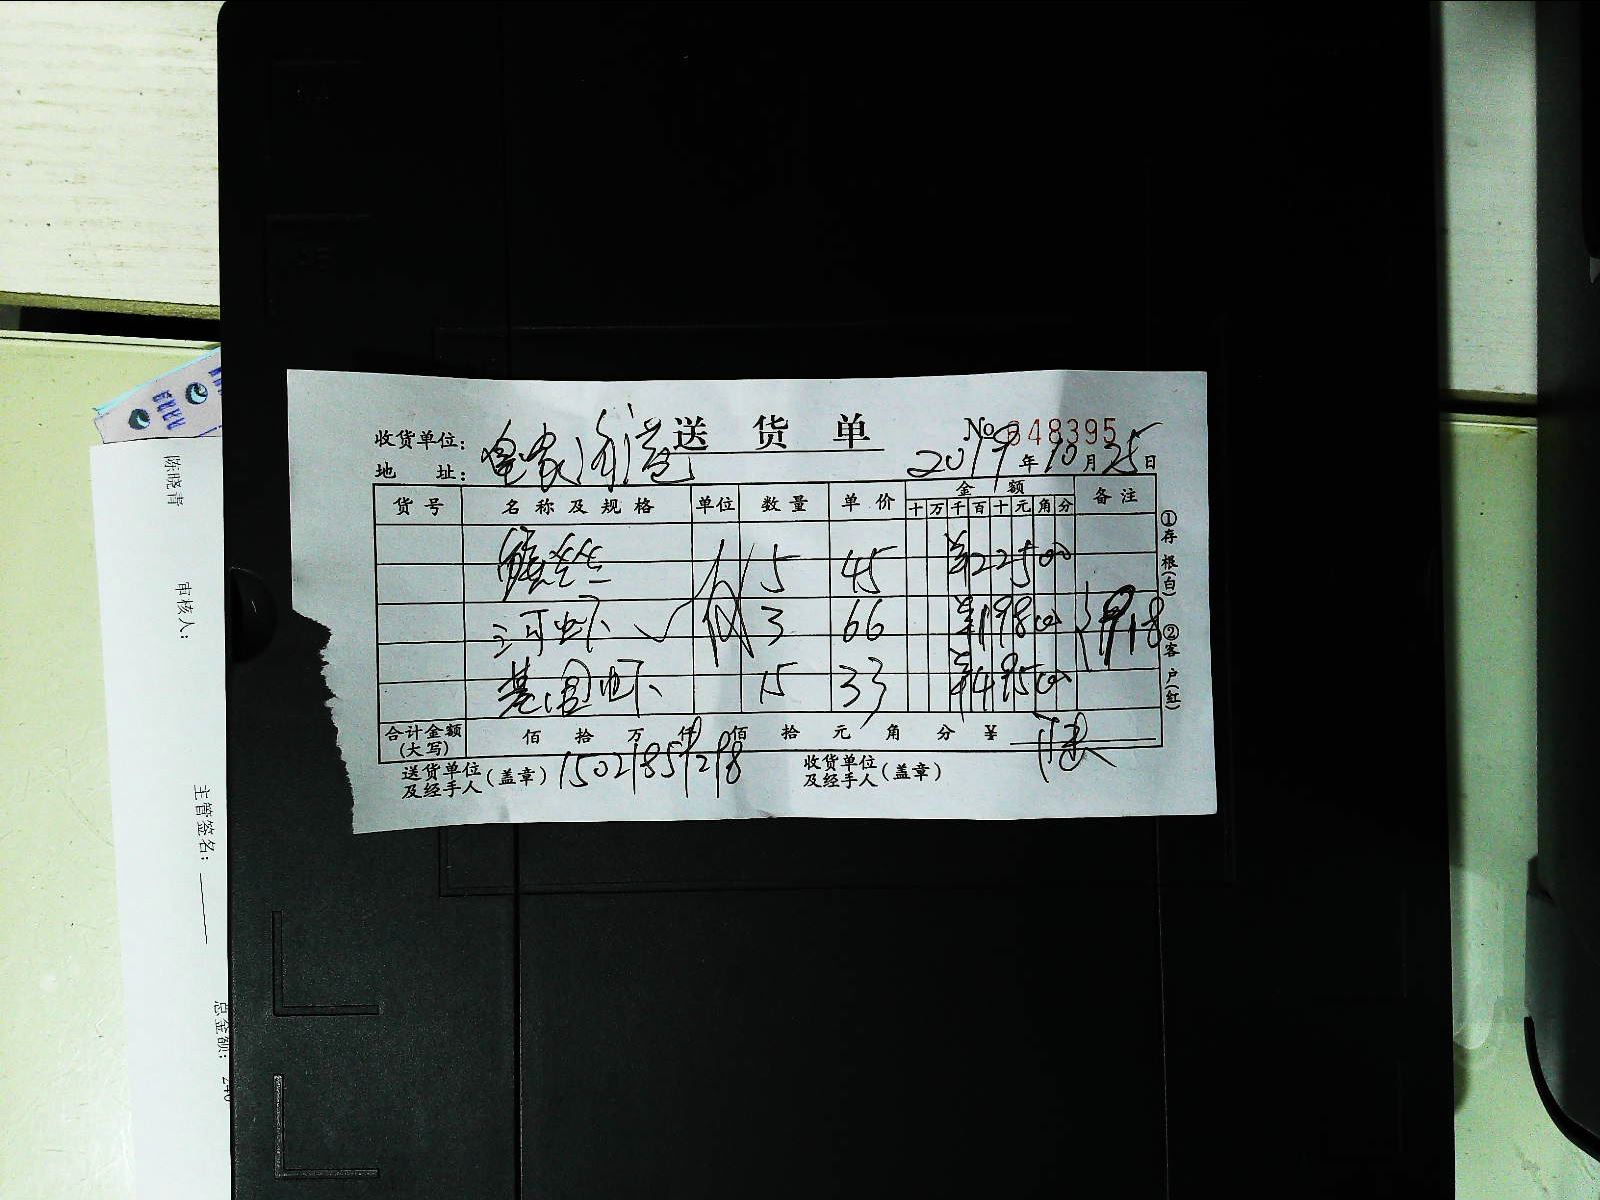 送货单
№ 348395
收货单位:
地 址:
2019年10月25日
货号 名称及规格 单位 数量 单价 金额 备注
十 万 千 百 十 元 角 分
5 45 ¥22500
河虾 3 66 ¥19800 918
基围虾 15 33 ¥49500
合计金额(大写) 佰 拾 万 仟 佰 拾 元 角 分 ¥
送货单位及经手人(盖章) 15021859298
收货单位及经手人(盖章)
①存根(白) ②客户(红)
陈晓青
审核人:
主管签名:
总金额: